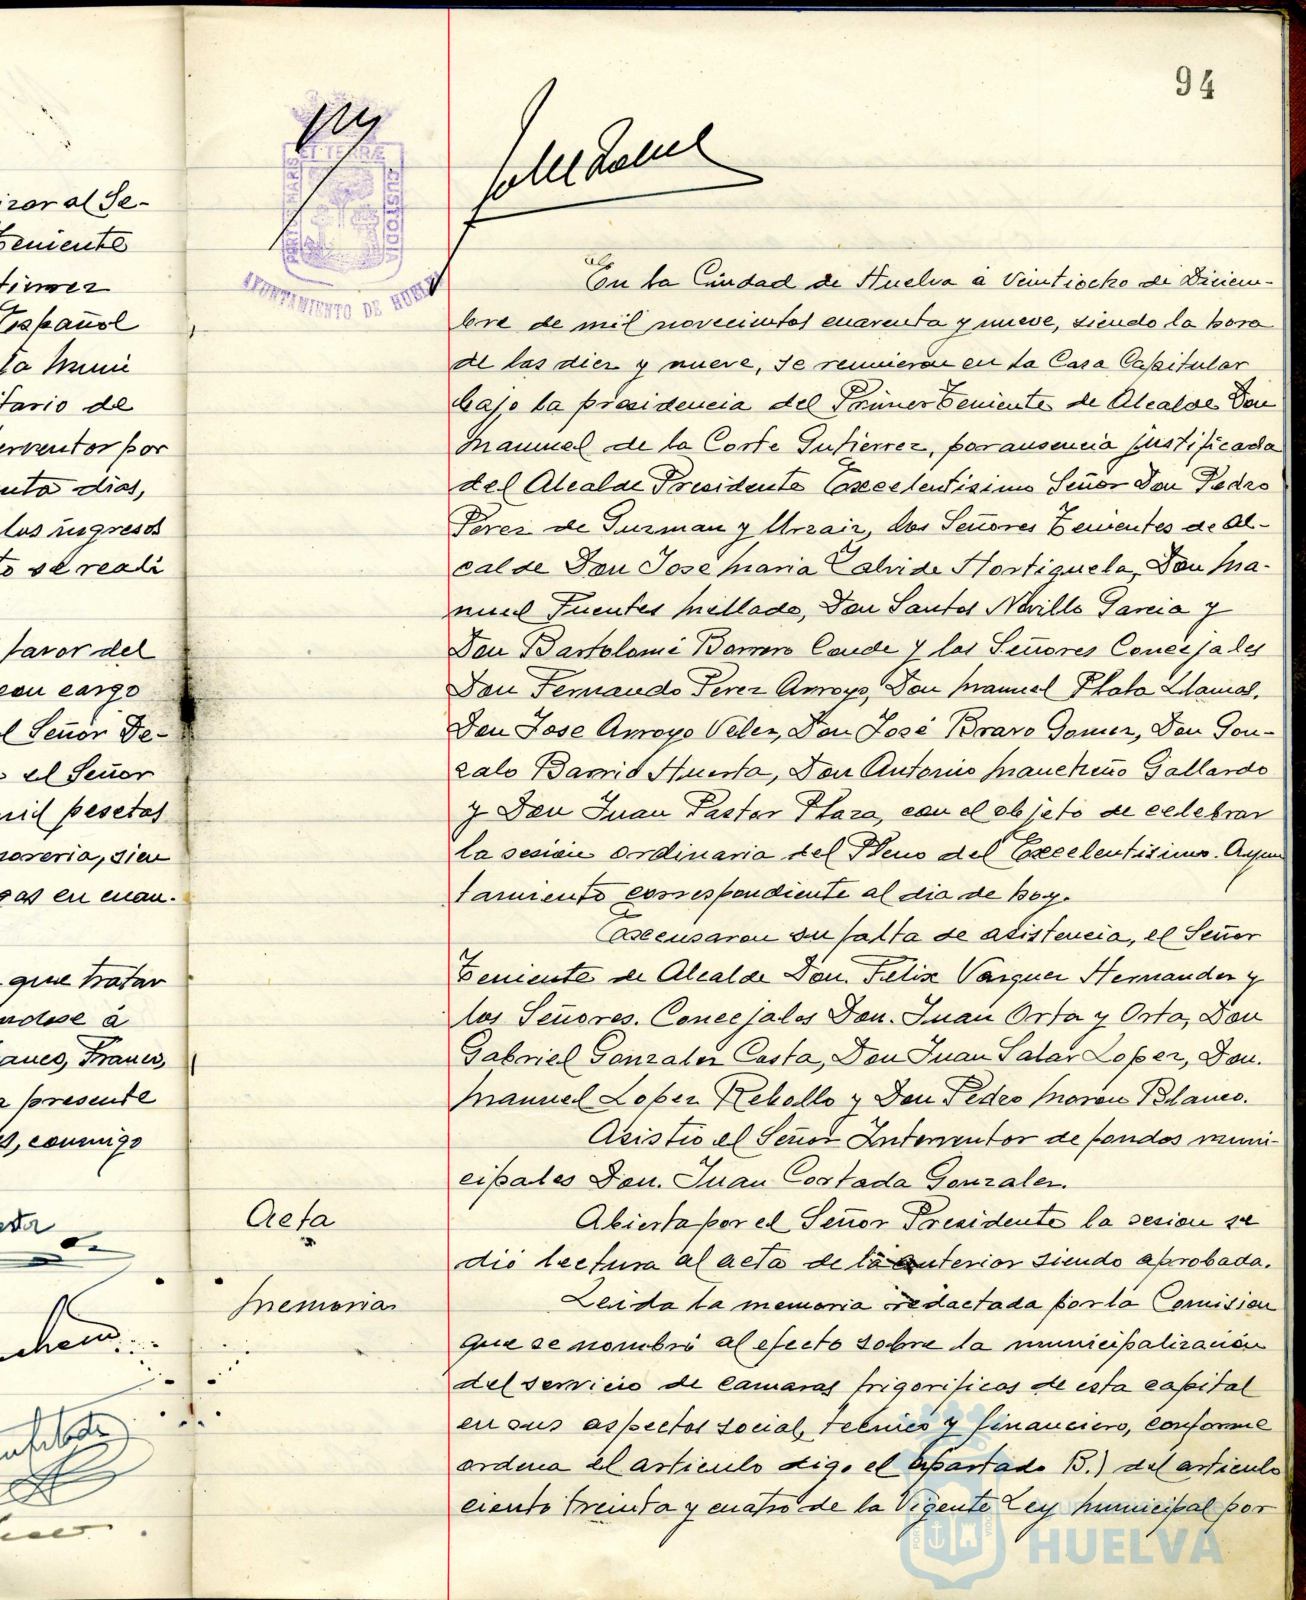 94
PORTUS MARIS ET TERRÆ CUSTODIA
AYUNTAMIENTO DE HUELVA
izar al Se-
Teniente
tierrez
Español
ta Muni
tario de
erventor por
enta dias,
los ingresos
to se reali
favor del
con cargo
l Señor De-
o el Señor
mil pesetas
soreria, sien
gas en cuan.
que tratar
ndose á
anco, Franco,
a presente
es, conmigo
En la Ciudad de Huelva á Veintiocho de Diciem-
bre de mil novecientos cuarenta y nueve, siendo la hora
de las diez y nueve, se reunieron en la Casa Capitular
bajo la presidencia del Primer Teniente de Alcalde Don
Manuel de la Corte Gutierrez, por ausencia justificada
del Alcalde Presidente Excelentisimo Señor Don Pedro
Perez de Guzman y Urzaiz, los Señores Tenientes de Al-
calde Don Jose Maria Zalvide Hortiguela, Don Ma-
nuel Fuentes Mellado, Don Santos Novillo Garcia y
Don Bartolomé Borrero Conde y los Señores Concejales
Don Fernando Perez Arroyo, Don Manuel Plata Llamas,
Don Jose Arroyo Velez, Don José Bravo Gomez, Don Gon-
zalo Barrio Huerta, Don Antonio Mancheño Gallardo
y Don Juan Pastor Plaza, con el objeto de celebrar
la sesión ordinaria del Pleno del Excelentisimo. Ayun
tamiento correspondiente al dia de hoy.
Excusaron su falta de asistencia, el Señor
Teniente de Alcalde Don. Felix Vazquez Hernandez y
los Señores. Concejales Don. Juan Orta y Orta, Don
Gabriel Gonzalez Costa, Don Juan Salas Lopez, Don.
Manuel Lopez Rebollo y Don Pedro Moron Blanco.
Asistió el Señor Interventor de fondos muni-
cipales Don. Juan Cortada Gonzalez.
Acta
Abierta por el Señor Presidente la sesion se
dió lectura al acta de la anterior siendo aprobada.
Memoria
Leida la memoria redactada por la Comision
que se nombró al efecto sobre la municipalización
del servicio de camaras frigorificas de esta capital
en sus aspectos social, tecnico y financiero, conforme
ordena el articulo digo el apartado B.) del articulo
ciento treinta y cuatro de la Vigente Ley Municipal por
HUELVA